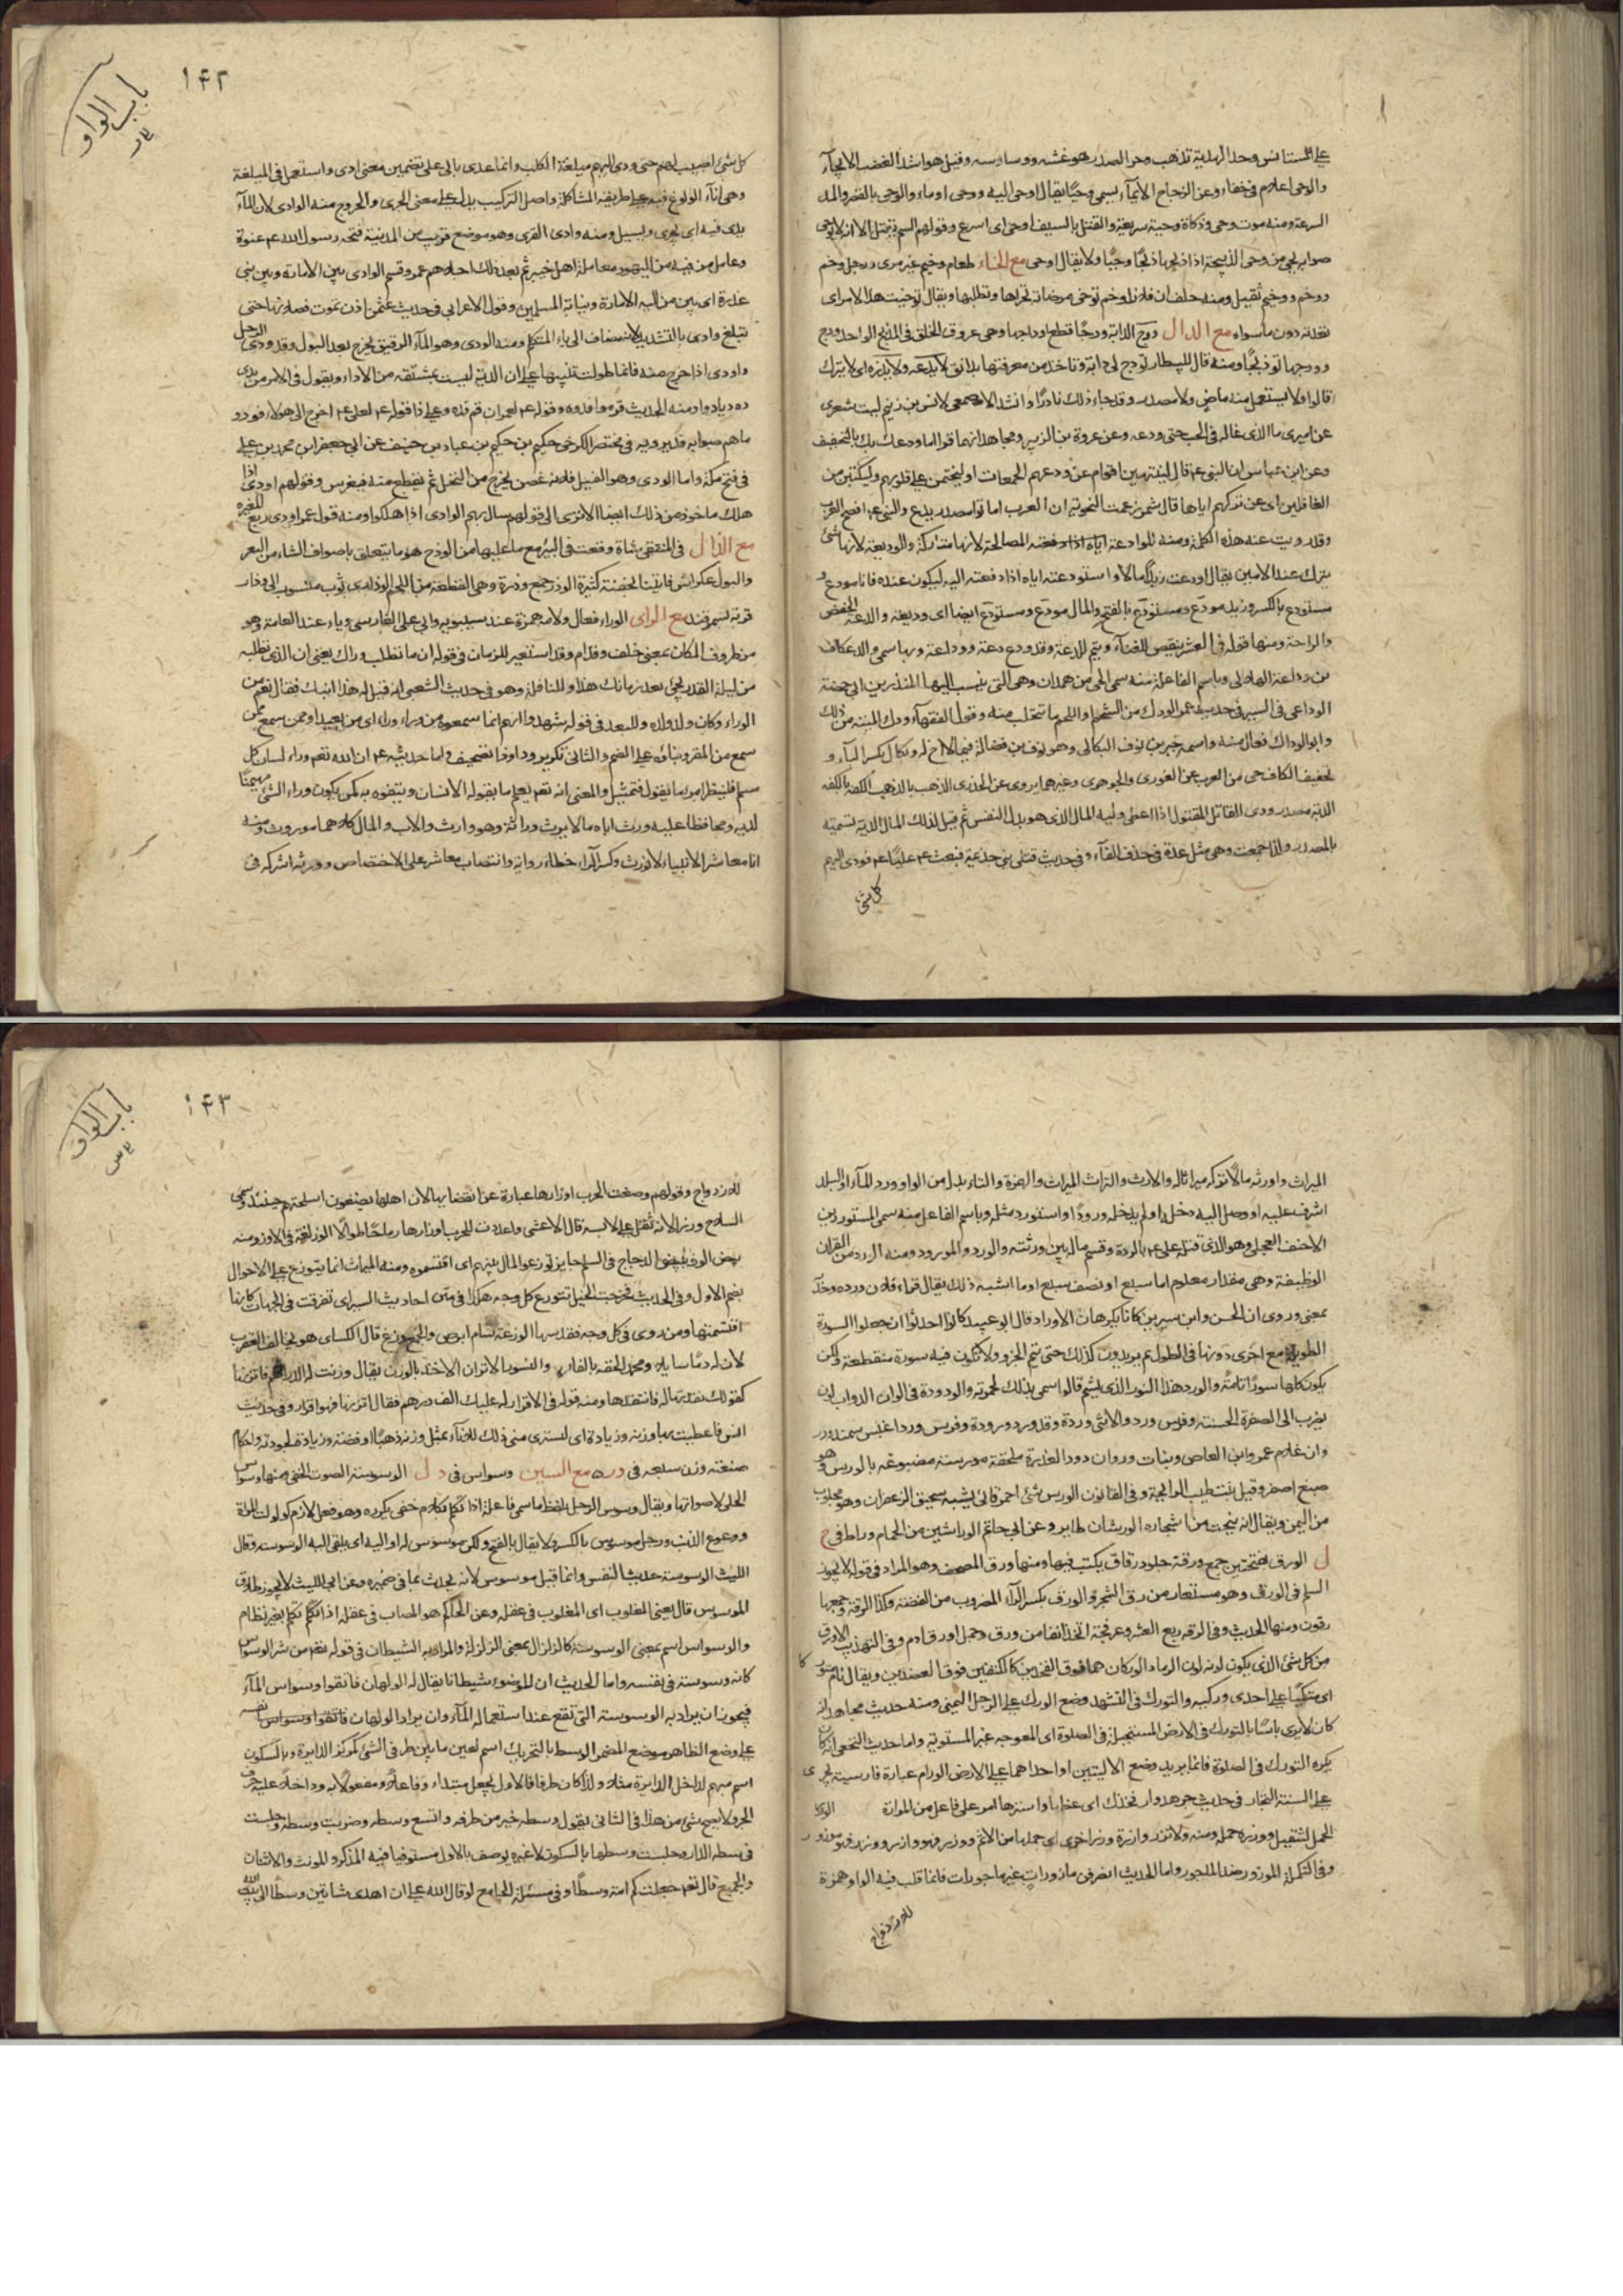 على المستانس وحد الهدية تذهب وحر الصدر هو غشه ووساوسه وقيل هو اشد الغضب الايحآء
والوحى اعلام فى خفاء وعن الزجاج الايمآء يسمى وحيًا يقال اوحى اليه ووحى اوماء والوحى بالقصر والمد
السرعة ومنه موت وحى وذكاة وحية سريعة والقتل بالسيف اوحى اى اسرع وقولهم السم يقتل الا انه لا يوحى
صوابه يحى من وحى الذبيحة اذا ذبحها ذبحًا وحيًا ولا يقال اوحى مع الخاء طعام وخيم غير مرى ورجل وخم
ووخم ووخيم ثقيل ومنه حلف ان فلانا وخم توخى مرضاته تحراها وتطلبها ويقال توخيت هذا الامر اى
تعمدته دون ما سواه مع الدال ودج الدابة ودجًا قطع اوداجها وهى عروق الحلق فى المذبح الواحد ودج
وودجها توديجًا ومنه قال للبيطار تودج لى دابة وتاخذ من معرفتها بدانق لا يدعه ولا يذره اى لا يترك
قالوا ولا يستعمل منه ماض ولا مصدر وقد جاء ذلك نادرًا وانشد الاصمعى لانس بن زنيم ليت شعرى
عن اميرى ما الذى غاله فى الحب حتى ودعه وعن عروة بن الزبير ومجاهد انهما قراا ما ودعك ربك بالتخفيف
وعن ابن عباس ان النبى ع م قال لينتهين اقوام عن ودعهم الجمعات او ليختمن على قلوبهم وليكتبن من
الغافلين اى عن تركهم اياها قال شمر زعمت النحوية ان العرب اماتوا مصدر يدع والنبى ع م افصح العرب
وقد رويت عنه هذه الكلمة ومنه الموادعة اياه اذا دفعته المصالحة لانها متاركة والوديعة لانها شئ
يترك عند الامين يقال اودعت زيدًا مالا واستودعته اياه اذا دفعته اليه ليكون عنده فانا مودع و
مستودع بالكسر وزيد مودع ومستودع بالفتح والمال مودع ومستودع ايضا اى وديعة والدعة الخفض
والراحة ومنها قوله فى العشر ينقص للفناء ويتم للدعة وقد ودع دعة ووداعة وبها سمى والد عكاف
بن وداعة الهلالى وباسم الفاعلة منه سمى الحى من همدان وهى التى ينسب اليها المنذر بن ابى حمضة
الوداعى فى السير فى حديث عمر الودك من الشحم او اللحم ما يتحلب منه وقول الفقهآء ودك الميتة من ذلك
وابو الوداك فعال منه واسمه جبر بن نوف البكالى وهو نوف بن فضالة فيما لاخ له وبكال بكسر البآء و
تخفيف الكاف حى من العرب عن الغورى والجوهرى وغيرهما يروى عن الخدرى الذهب بالذهب الكفة بالكفه
الدية مصدر ودى القاتل المقتول اذا اعطى وليه المال الذى هو بدل النفس ثم قيل لذلك المال الدية تسمية
بالمصدر ولذا جمعت وهى مثل عدة فى حذف الفآء وفى حديث قتلى بنى جذيمة فبعث ع م عليًا ع م فودى اليهم
كل شئ
باب الواو
١٤٢
كل شئ اصيب لهم حتى ودى اليهم ميلغة الكلب وانما عدى بالى على تضمين معنى ادى واستعمل فى الميلغة
وهى اناء الولوغ فيه على طريق المشاكلة واصل التركيب يدل على معنى الجرى والخروج منه الوادى لان المآء
يدى فيه اى يجرى ويسيل ومنه وادى القرى وهو موضع قريب من المدينة فتحه رسول الله ع م عنوة
وعامل من فيه من اليهود معاملة اهل خيبر ثم بعد ذلك اجلاهم عمر وقسم الوادى بين الامارة وبين بنى
عذرة اى بين من اليه الامارة ونيابة المسلمين وقول الاعرابى فى حديث عثمن اذن تموت فصلانها حتى
تبلغ وادى بالتشديد لانه مضاف الى ياء المتكلم ومنه الودى وهو المآء الرقيق يخرج بعد البول وقد ودى الرجل
واودى اذا خرج منه فانما طولت تنبيها على ان الدية ليست بمشتقه من الاداء ويقول فى الامر من يدى
ده ديا دوا ومنه الحديث قوموا فدوه وقوله ع م لعمران قم فده وعلى ذا قوله ع م لعلى ع م اخرج الى هؤلاء فودو
ماهم صوابه فدهم وفى مختصر الكرخى حكيم بن حكيم بن عباد بن حنيف عن ابى جعفر ابن محمد بن على
فى فتح مكة واما الودى وهو الفسيل فلانه غصن يخرج من النخل ثم يقطع منه فيغرس وقولهم اودى اذا
هلك ماخوذ من ذلك ايضا الا ترى الى قولهم سال بهم الوادى اذا هلكوا ومنه قول عمر اودى ربع المغيرة
مع الذال فى المنتقى شاة وقعت فى البئر مع ما عليها من الوذح هو ما يتعلق باصواف الشاء من البعر
والبول عكراش فاتينا بجفنة كثيرة الوذر جمع وذرة وهى القطعة من اللحم الوذارى ثوب منسوب الى وذار
قرية بسمرقند مع الراى الوراء فعال ولامه همزة عند سيبويه وابى على الفارسى وياء عند العامة وهو
من ظروف المكان بمعنى خلف وقدام وقد استعير للزمان فى قوله ان ما تطلب وراك يعنى ان الذى تطلبه
من ليلة القدر يجئ بعد زمانك هذا وللنافلة وهو فى حديث الشعبى انه قيل له هذا ابنك فقال نعم من
الوراء وكان ولد ولده وللبعد فى قوله شهدوا انهم انما سمعوه من وراء وراء اى من بعيد او ممن سمع ممن
سمع من المقر وبناؤه على الضم والثانى تكرير وداوذا تصحيف واما حديثه ع م ان الله تعم وراء لسان كل
مسلم فلينظر امرء ما يقول فتمثيل والمعنى انه تعم يعلم ما يقوله الانسان ويتفوه به كمن يكون وراء الشئ مهيمنًا
لديه ومحافظا عليه ورث اباه مالا يرث وراثة وهو وارث والاب والمال كلاهما موروث ومنه
انا معاشر الانبياء لا نورث وكسر الراء خطاء رواية وانتصاب معاشر على الاختصاص وورثه اشركه فى
الميراث واورثه مالا تركه ميراثا له والارث والتراث الميراث والهمزة والتاء بدل من الواو ورد المآء او البلد
اشرف عليه او وصل اليه دخله او لم يدخله ورودًا واستورد مثله وباسم الفاعل منه سمى المستورد بن
الاحنف العجلى وهو الذى قتله على ع م بالردة وقسم ماله بين ورثته والورد والمورود ومنه الورد من القران
الوظيفة وهى مقدار معلوم اما سبع او نصف سبع او ما اشبه ذلك يقال قراء فلان ورده وحزبه
بمعنى وروى ان الحسن وابن سيرين كانا يكرهان الاوراد قال ابو عبيد كانوا احدثوا ان جعلوا السورة
الطويلة مع اخرى دونها فى الطول ثم يزيدون كذلك حتى يتم الجزء ولا تكون فيه سورة منقطعة ولكن
يكون كلها سورًا تامة والورد هذا النور الذى يشم قالوا سمى بذلك لحمرته والورودة فى الوان الدواب لون
يضرب الى الصفرة الحسنة وفرس ورد والانثى وردة وقد ورد ورودة وفرس ورد اغبس سمند ودر
دان غلام عمرو ابن العاص وبنات وردان دود العذرة ملحفة مورسة مصبوغة بالورس وهو
صبغ اصفر وقيل نبت طيب الرايحة وفى القانون الورس شئ احمر قانى يشبه سحيق الزعفران وهو مجلوب
من اليمن ويقال انه ينحت من اشجاره الورشان طاير وعن ابى حاتم الوراشين من الحمام وراط فى خ
ل الورق بفتحتين جمع ورقة جلود رقاق يكتب فيها ومنها ورق المصحف وهو المراد فى قوله لا يجوز
السلم فى الورق وهو مستعار من ورق الشجر والورق بكسر الرآء المضروب من الفضة وكذا الرقة وجمعها
رقون ومنها الحديث وفى الرقه ربع العشر وعرفجة اتخذ انفا من ورق وجمل اورق ادم وفى التهذيب الاورق
من كل شئ الذى يكون لونه لون الرماد الوركان هما فوق الفخذين كالكتفين فوق العضدين ويقال نام متوركا
اى متكيًا على احدى وركيه والتورك فى التشهد وضع الورك على الرجل اليمنى ومنه حديث مجاهد انه
كان لا يرى باسًا بالتورك فى الارض المستحيلة فى الصلوة اى المعوجه غير المستوية واما حديث النخعى انه كان
يكره التورك فى الصلوة فانما يريد وضع الاليتين او احداهما على الارض الورام عبارة فارسيته تجرى
على السنة التجار فى حديث جرهد وار فخذك اى غطها واسترها امر على فاعل من المواراة الوزر
الحمل الثقيل ووزره حمله ومنه ولا تزر وازرة وزر اخرى اى حملها من الاثم ووزر فهو وازر ووزر فهو موزور
وفى التكملة الموزور ضد الماجور واما الحديث انصرفن مازورات غير ماجورات فانما قلب فيه الواو همزة
للازدواج
باب الواو
١٤٣
للازدواج وقولهم وضعت الحرب اوزارها عبارة عن انقضايها لان اهلها يضعون اسلحتهم حينئذ وسمى
السلاح وزرا لانه ثقل على لابسه قال الاعشى واعددت للحرب اوزارها رماحًا طوالًا الوز لغة فى الاوز ومنه
بيض الوز وبيض الدجاج فى السلم جايز توزعوا المال بينهم اى اقتسموه ومنه الميراث انما يتوزع على الاحوال
بضم الاول وفى الحديث فخرجت الخيل تتوزع كل وجه هكذا فى متن احاديث السير اى تفرقت فى الجهات كانها
اقتسمتها ومن روى فى كل وجه فقد سها الوزغة سام ابرص والجمع وزغ قال الكساى هو يخالف العقرب
لان له دمًا سايلا ومحمد الحقه بالفارة والنسور الاتزان الاخذ بالوزن يقال وزنت له الدراهم فاتزنها
كقولك نقدتها له فانتقدها ومنه قوله فى الاقرار له عليك الف درهم فقال اتزنها فهو اقرار وفى حديث
انس فاعطيت بها وزنه وزيادة اى اشترى منى ذلك الاناء بمثل وزنه ذهبًا او فضة وزيادة لجودته واحكام
صنعته وزن سبعه فى در ه مع السين وسواس فى د ل الوسوسة الصوت الخفى ومنها وسواس
الحلى لاصواتها ويقال وسوس الرجل بلفظ ما سمى فاعله اذا تكلم بكلام خفى يكرره وهو فعل لازم كولولت المراة
ووعوع الذئب ورجل موسوس بالكسر ولا يقال بالفتح ولكن موسوس له او اليه اى يلقى اليه الوسوسة وقال
الليث الوسوسة حديث النفس وانما قيل موسوس لانه يحدث بما فى ضميره وعن ابى الليث لا يجوز طلاق
الموسوس قال يعنى المغلوب اى المغلوب فى عقله وعن الحاكم هو المصاب فى عقله اذا تكلم تكلم بغير نظام
والوسواس اسم بمعنى الوسوسة كالزلزال بمعنى الزلزلة والمراد به الشيطان فى قوله تعم من شر الوسواس
كانه وسوسة فى نفسه واما الحديث ان للوضوء شيطانا يقال له الولهان فاتقوا وسواس المآء
فيجوز ان يراد به الوسوسة التى تقع عند استعماله المآء وان يراد الولهان نفسه فاتقوا وسواس
على وضع الظاهر موضع المضمر الوسط بالتحريك اسم لعين ما بين طرفى الشئ كمركز الدايرة وبالسكون
اسم مبهم لداخل الدايرة مثلا ولذا كان ظرفا فالاول يجعل مبتداء وفاعلا ومفعولا به وداخلا عليه حرف
الجر ولا يصح شئ من هذا فى الثانى تقول وسطه خير من طرفه واتسع وسطه وضربت وسطه وجلست
فى وسطه الدار وجلست وسطها بالسكون لا غير ويوصف بالاول مستويا فيه المذكر والمؤنث والاثنان
والجمع قال تعم جعلناكم امة وسطًا وفى مسئلة الجامع لو قال لله على ان اهدى شاتين وسطًا الى بيت الله